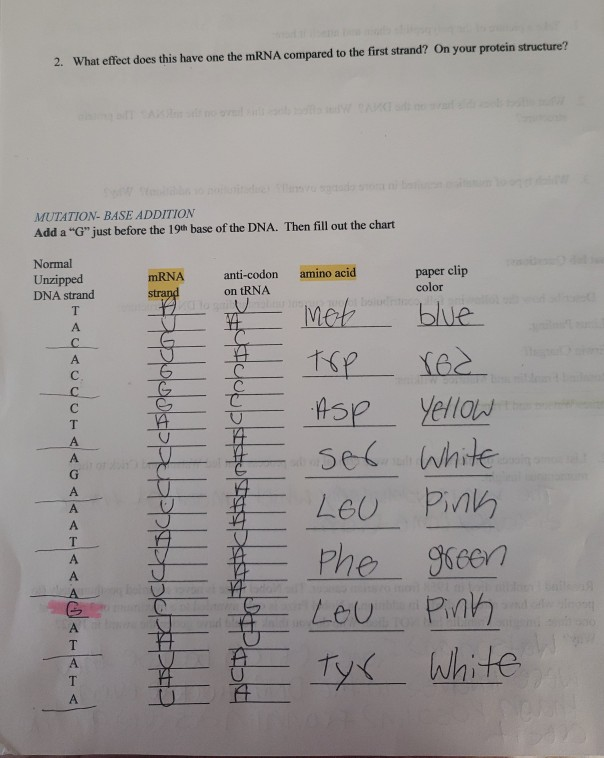 2. What effect does this have one the mRNA compared to the first strand? On your protein structure?
MUTATION- BASE ADDITION
Add a "G" just before the 19th base of the DNA. Then fill out the chart
Normal
Unzipped mRNA anti-codon amino acid paper clip
DNA strand strand on tRNA color
T A U Met blue
A U A
C G C
A U A Trp red
C G C
C G C
C G C Asp Yellow
T A U
A U A
A U A Ser White
G C G
A U A
A U A Leu Pink
A U A
T A U
A U A Phe green
A U A
A U A
G C G Leu Pink
A U A
T A U
A U A Tyr White
T A U
A U A